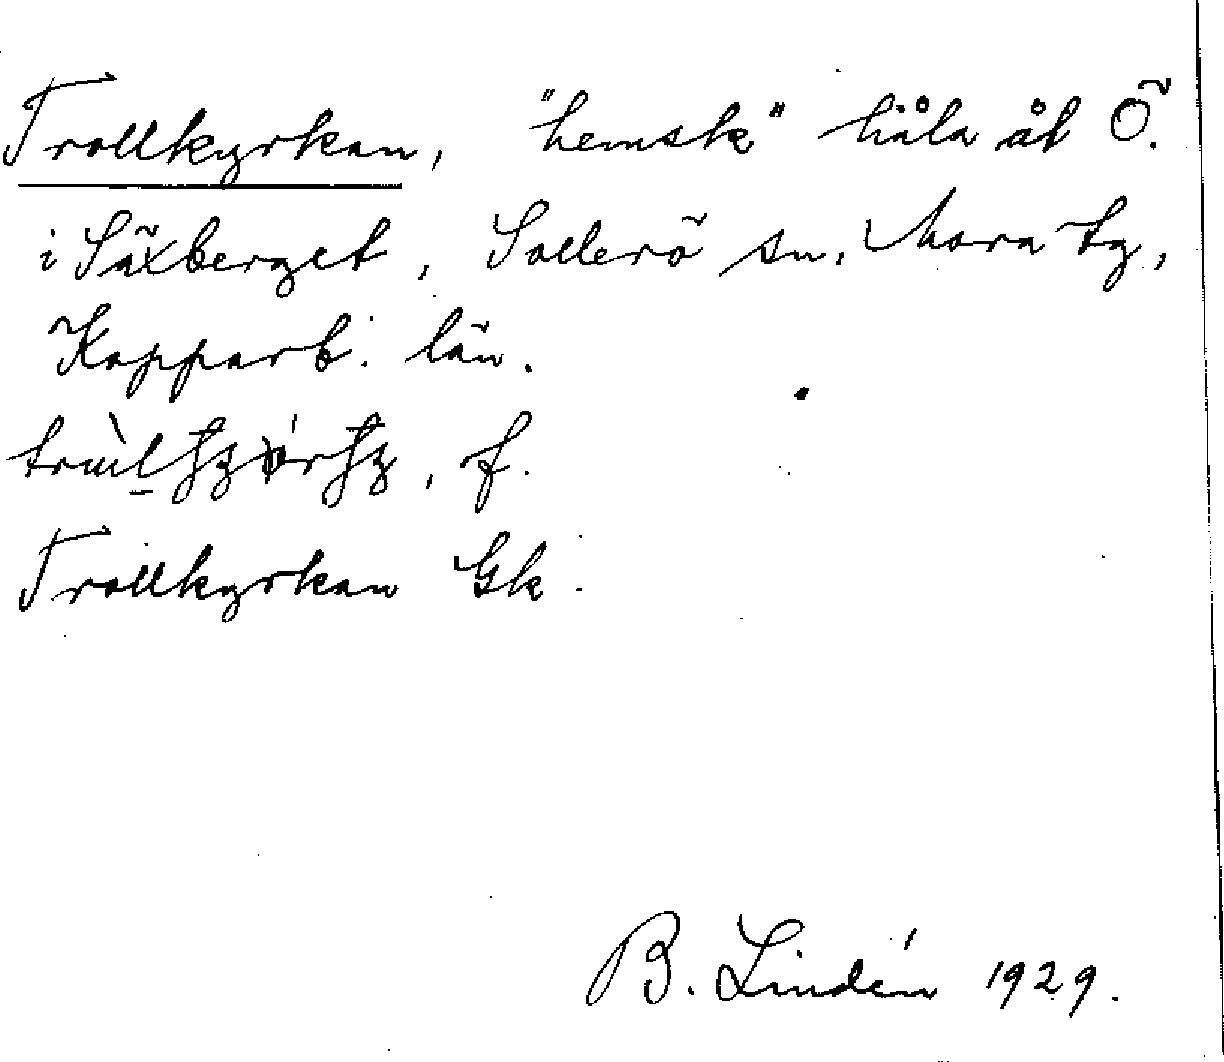 Trollkyrkan, "hemsk" håla åt Ö.
i Säxberget, Sollerö sn, Mora tg,
Kopparb. län.
f.
Trollkyrkan Gk.
B. Lindén 1929.